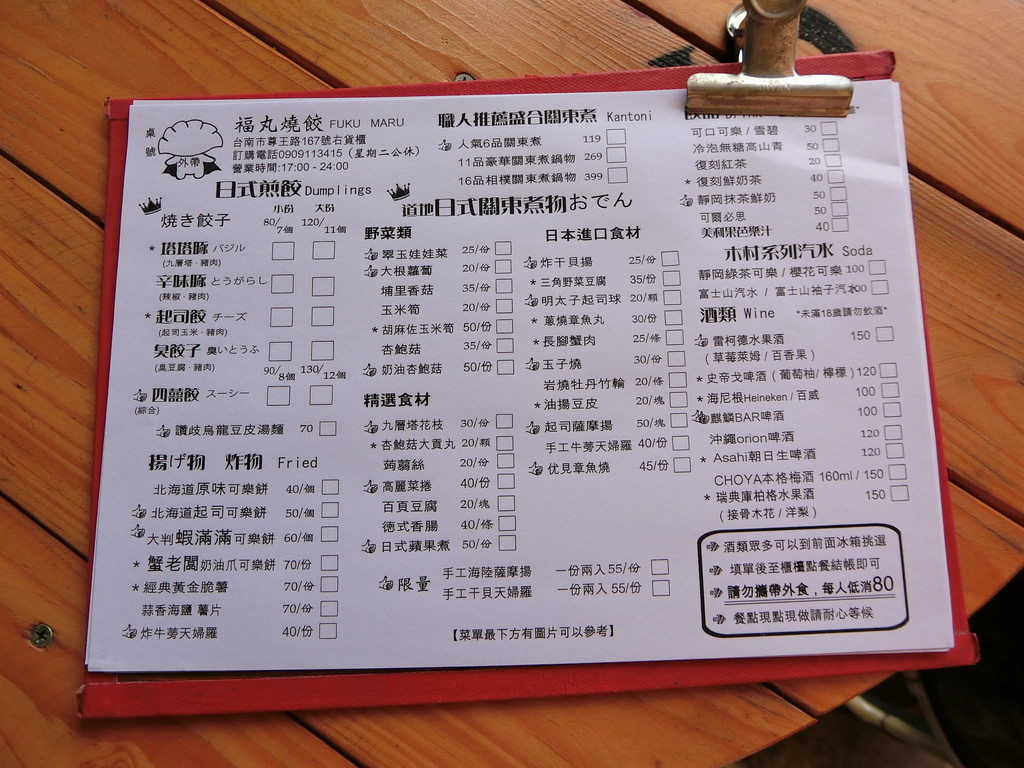 桌號
外帶
福丸燒餃 FUKU MARU
台南市尊王路167號右貨櫃
訂購電話0909113415 (星期二公休)
營業時間:17:00 - 24:00
日式煎餃Dumplings
焼き餃子 小份 80/7個 大份 120/11個
* 塔塔豚 バジル
(九層塔·豬肉)
辛味豚 とうがらし
(辣椒·豬肉)
* 起司餃 チーズ
(起司玉米·豬肉)
臭餃子 臭いとうふ
(臭豆腐·豬肉)
90/8個 130/12個
四囍餃 スーシー
(綜合)
讚歧烏龍豆皮湯麵 70
揚げ物 炸物 Fried
北海道原味可樂餅 40/個
北海道起司可樂餅 50/個
大判蝦滿滿可樂餅 60/個
* 蟹老闆奶油爪可樂餅 70/份
* 經典黃金脆薯 70/份
蒜香海鹽 薯片 70/份
炸牛蒡天婦羅 40/份
職人推薦盛合關東煮 Kantoni
人氣6品關東煮 119
11品豪華關東煮鍋物 269
16品相樸關東煮鍋物 399
道地日式關東煮物おでん
野菜類
翠玉娃娃菜 25/份
大根蘿蔔 20/份
埔里香菇 35/份
玉米筍 20/份
* 胡麻佐玉米筍 50/份
杏鮑菇 35/份
奶油杏鮑菇 50/份
精選食材
九層塔花枝 30/份
* 杏鮑菇大貢丸 20/顆
蒟蒻絲 20/份
高麗菜捲 40/份
百頁豆腐 20/塊
德式香腸 40/條
日式蘋果煮 50/份
日本進口食材
炸干貝揚 25/份
* 三角野菜豆腐 35/份
明太子起司球 20/顆
* 蔥燒章魚丸 30/份
* 長腳蟹肉 25/條
玉子燒 30/份
岩燒牡丹竹輪 20/條
* 油揚豆皮 20/塊
起司薩摩揚 50/條
手工牛蒡天婦羅 40/份
伏見章魚燒 45/份
限量
手工海陸薩摩揚 一份兩入 55/份
手工干貝天婦羅 一份兩入 55/份
【菜單最下方有圖片可以參考】
可口可樂 / 雪碧 30
冷泡無糖高山青 50
復刻紅茶 20
* 復刻鮮奶茶 40
靜岡抹茶鮮奶 50
可爾必思 50
美利果芭樂汁 40
木村系列汽水 Soda
靜岡綠茶可樂 / 櫻花可樂 100
富士山汽水 / 富士山柚子汽水 100
酒類 Wine *未滿18歲請勿飲酒*
雷柯德水果酒 150
(草莓萊姆 / 百香果)
* 史帝戈啤酒 (葡萄柚/ 檸檬) 120
* 海尼根Heineken / 百威 100
麒麟BAR啤酒 100
沖繩orion啤酒 120
* Asahi朝日生啤酒 120
CHOYA本格梅酒 160ml / 150
* 瑞典庫柏格水果酒 150
(接骨木花 / 洋梨)
酒類眾多可以到前面冰箱挑選
填單後至櫃檯點餐結帳即可
請勿攜帶外食，每人低消80
餐點現點現做請耐心等候